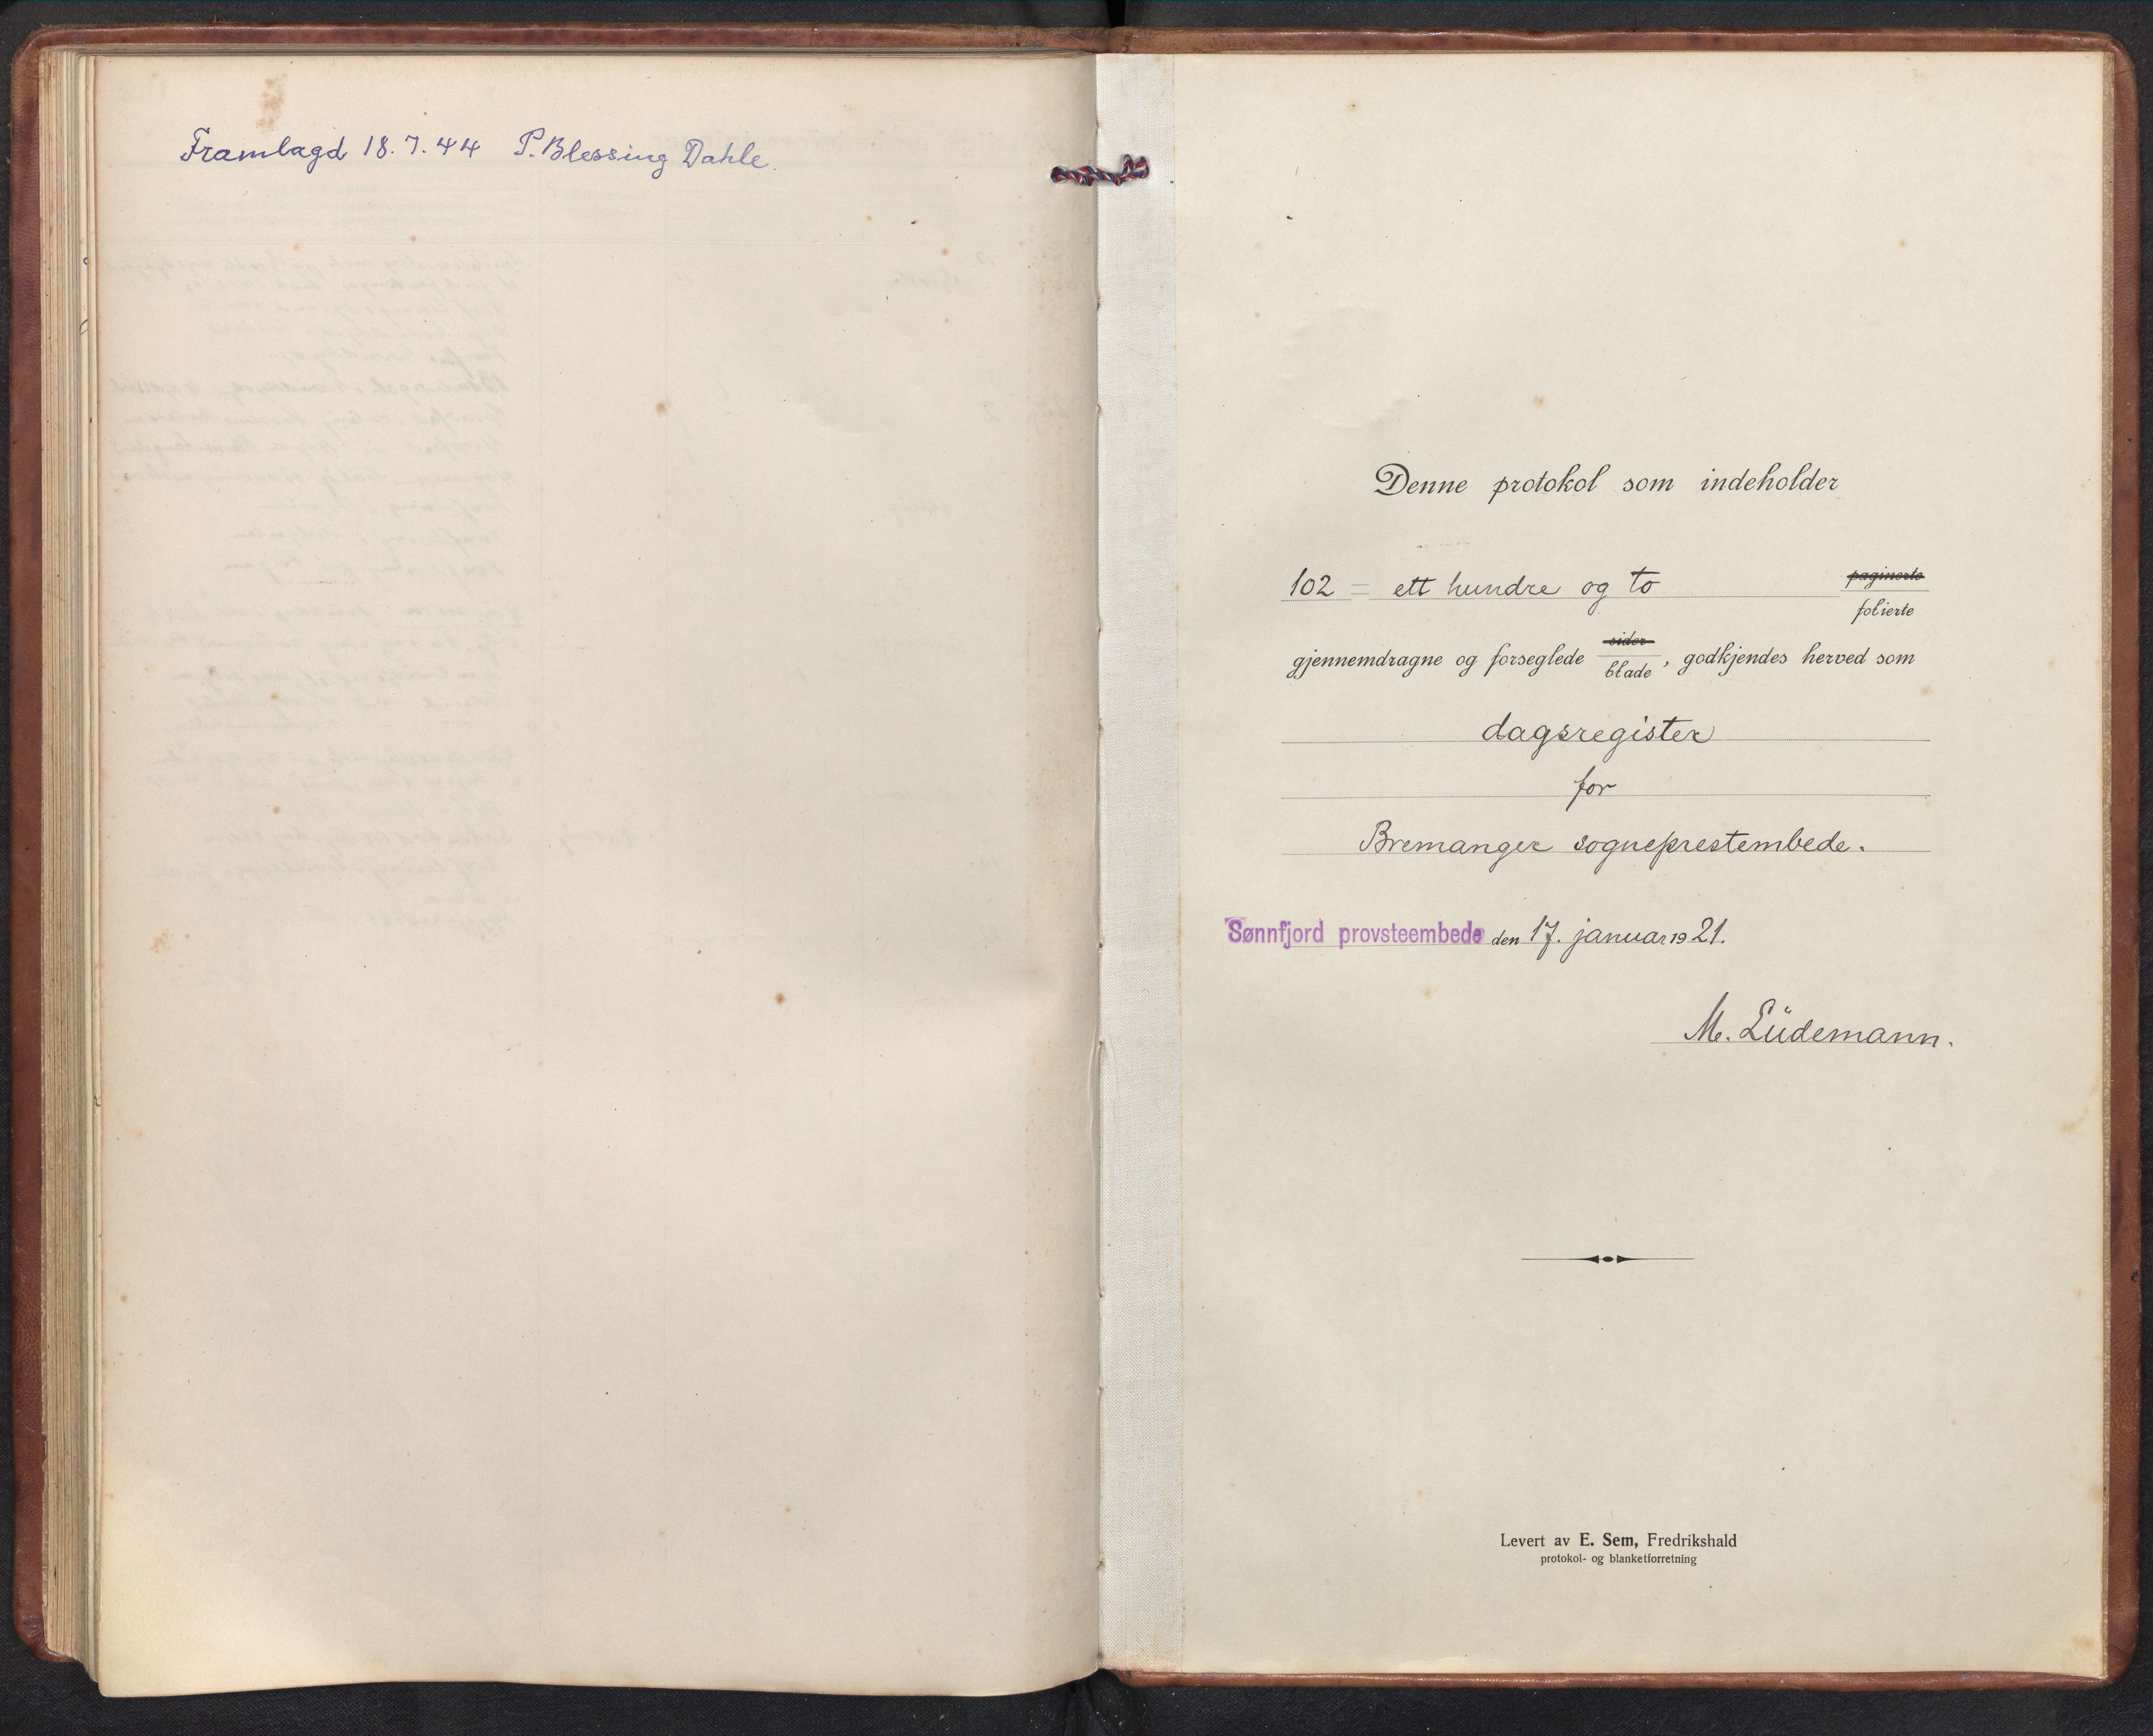 Framlagd 18.7.44 P. Blessing Dahle.
Denne protokol som indeholder
102 = ett hundre og to paginerte
folierte
gjennemdragne og forseglede sider blade, godkjendes herved som
dagsregister
for
Bremanger sogneprestembede.
Sønnfjord provsteembede den 17. januar 1921.
M. Lüdemann.
Levert av E. Sem, Fredrikshald
protokol- og blanketforretning